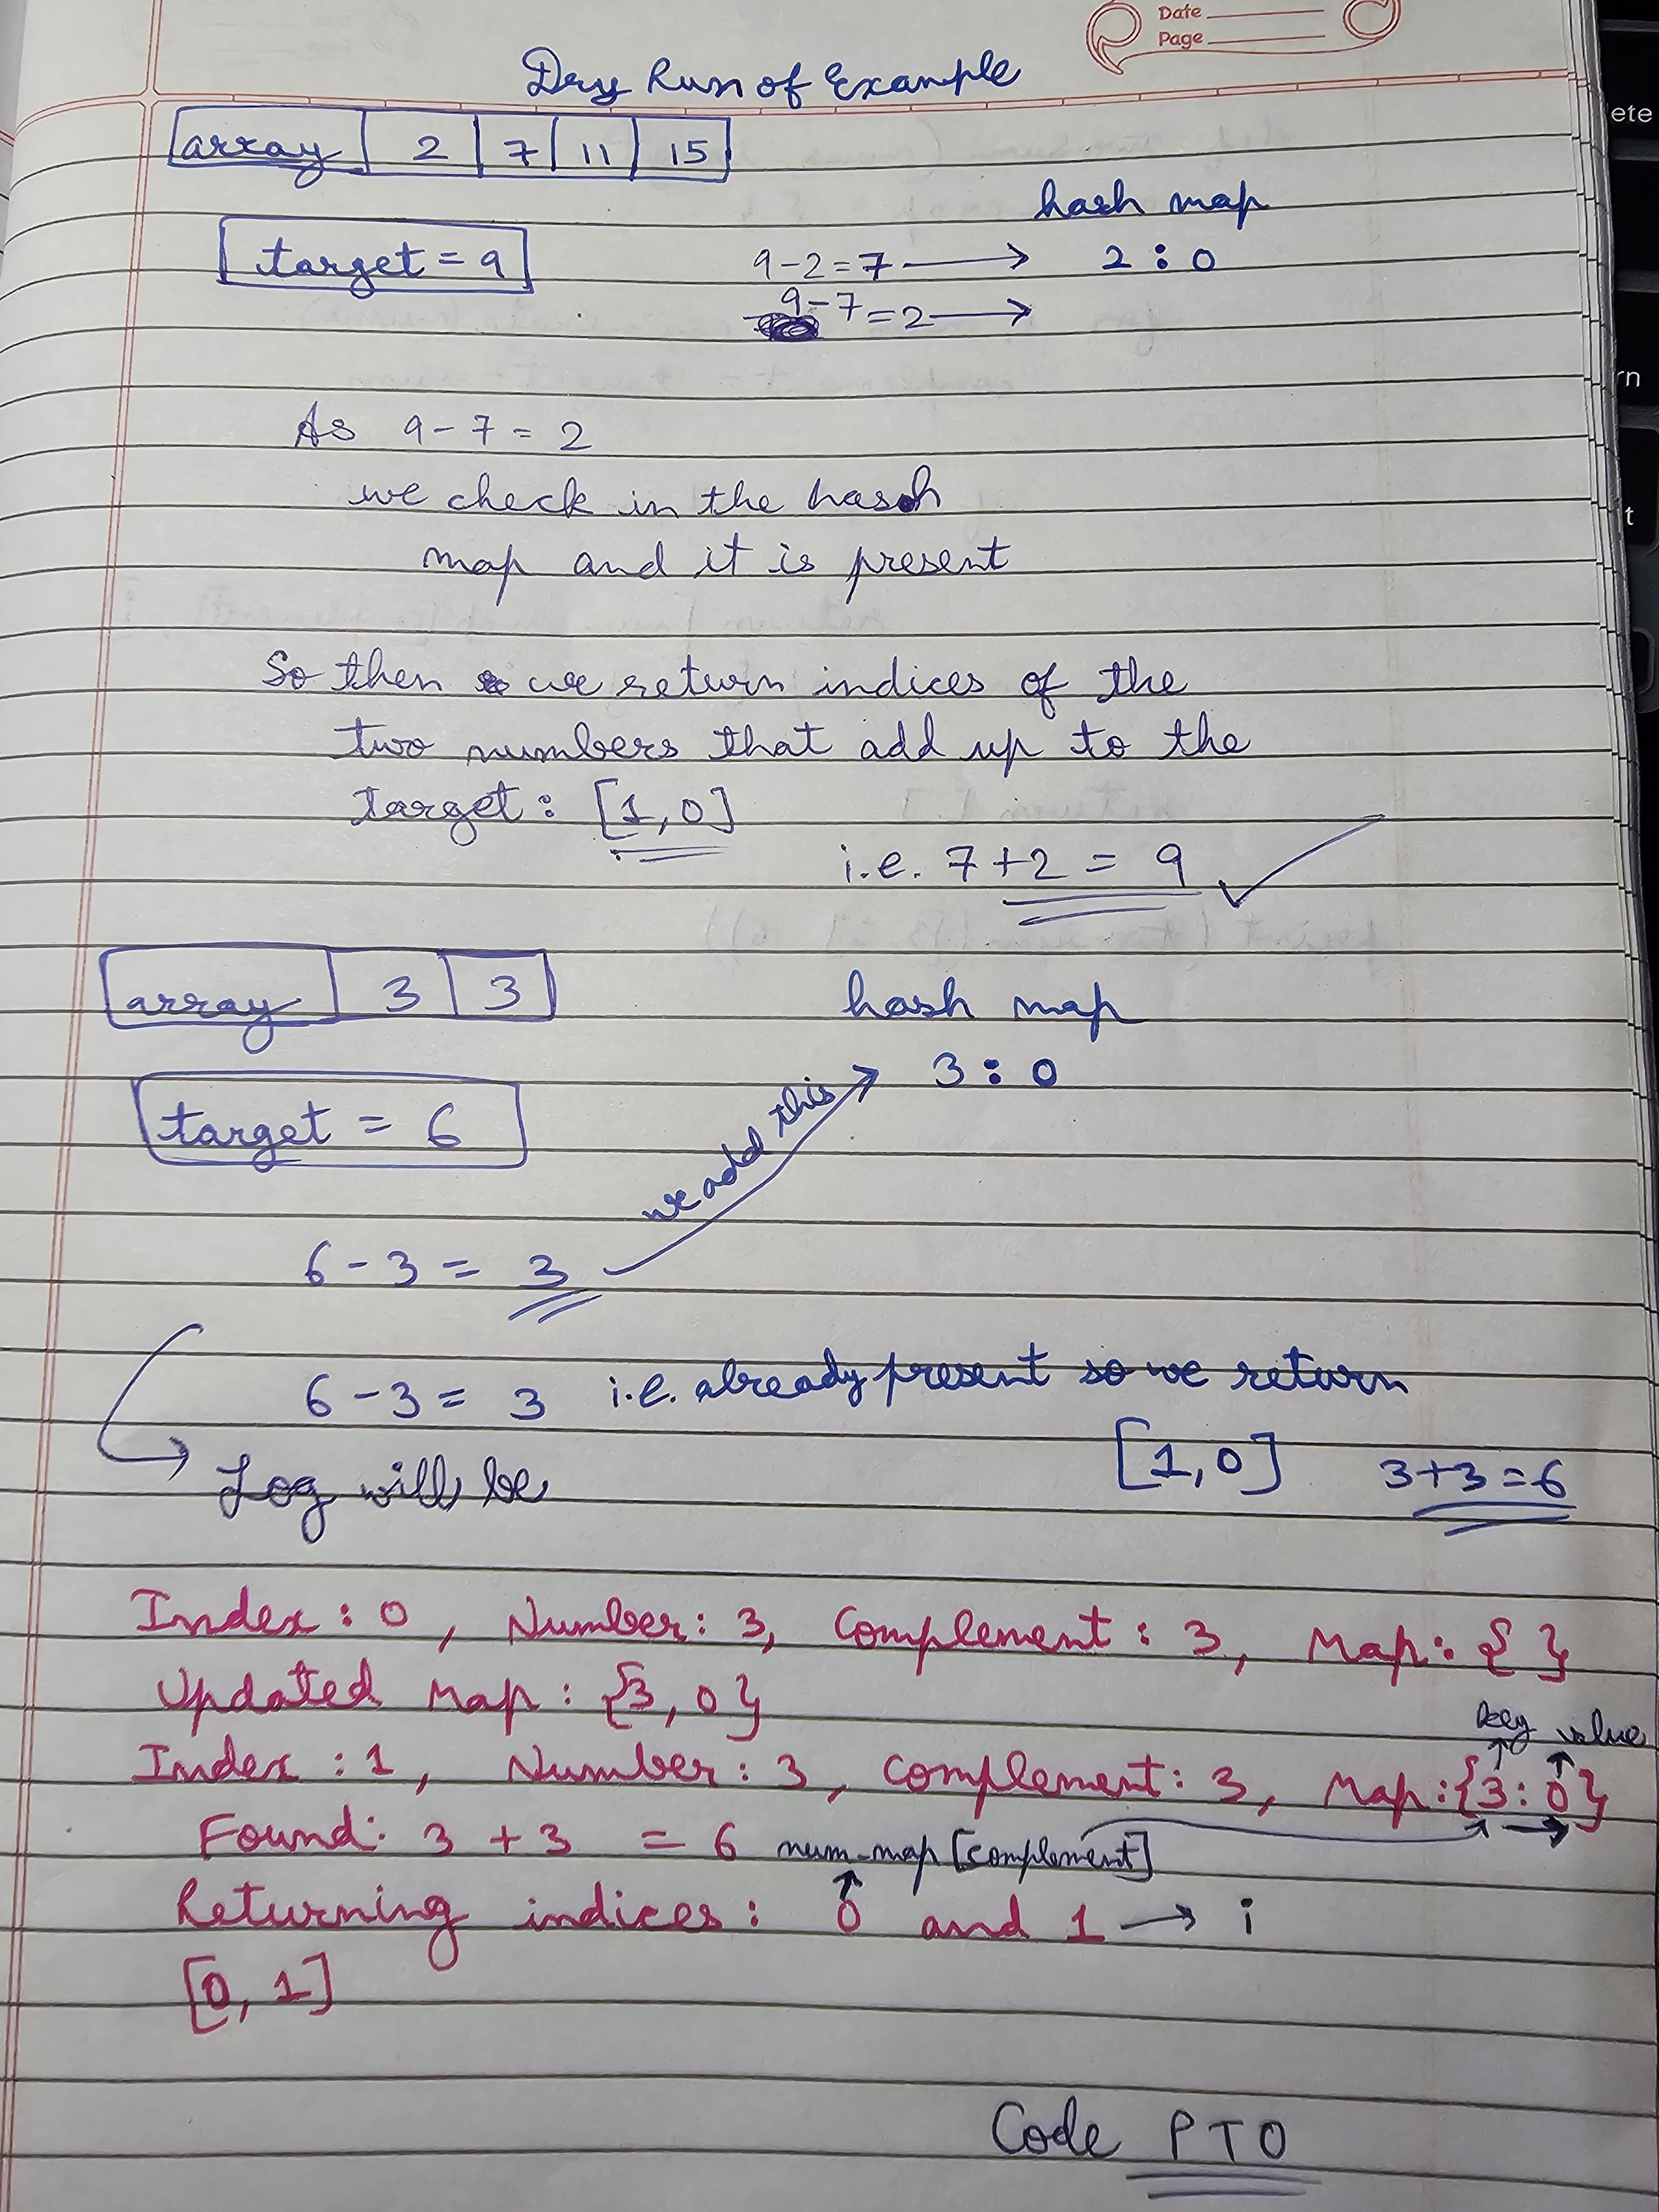 Date
Page
Dry Run of Example
array 2 7 11 15
hash map
target = 9
9-2=7 → 2 : 0
9-7=2 →
As 9-7=2
we check in the hash
map and it is present
So then we return indices of the
two numbers that add up to the
target: [1,0]
i.e. 7+2 = 9 ✓
array 3 3
hash map
3 : 0
target = 6
we add this
6 - 3 = 3
6 - 3 = 3 i.e. already present so we return
[1,0] 3+3=6
Log will be
Index : 0, Number: 3, Complement : 3, Map: { }
Updated Map : {3, 0}
key value
Index : 1, Number : 3, Complement: 3, Map:{3:0}
Found: 3 + 3 = 6 num_map[complement]
Returning indices: 0 and 1 → i
[0, 1]
Code PTO
ete
rn
t